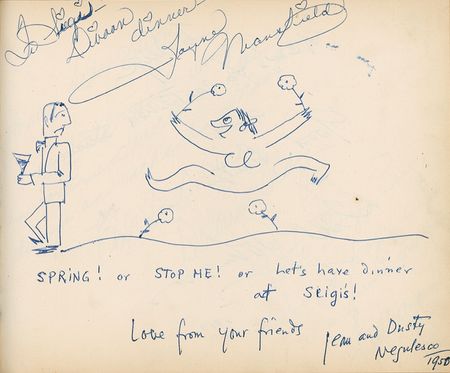 To Sigis
Divoon dinner
Jayne Mansfield
SPRING! or STOP ME! or Let's have dinner
at Seigis!
Love from your friends Jean and Dusty
Negulesco
1950